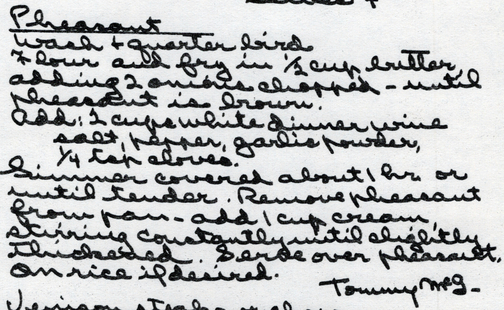 Pheasant
Wash + quarter bird
Flour and fry in 1/2 cup butter,
adding 2 onions chopped - until
pheasant is brown.
Add: 2 cups white dinner wine
salt, pepper, garlic powder,
1/4 tsp cloves.
Simmer covered about 1 hr or
until tender. Remove pheasant
from pan - add 1 cup cream,
stirring constantly until slightly
thickened. Serve over pheasant,
on rice if desired.
Tommy McG-
Venison